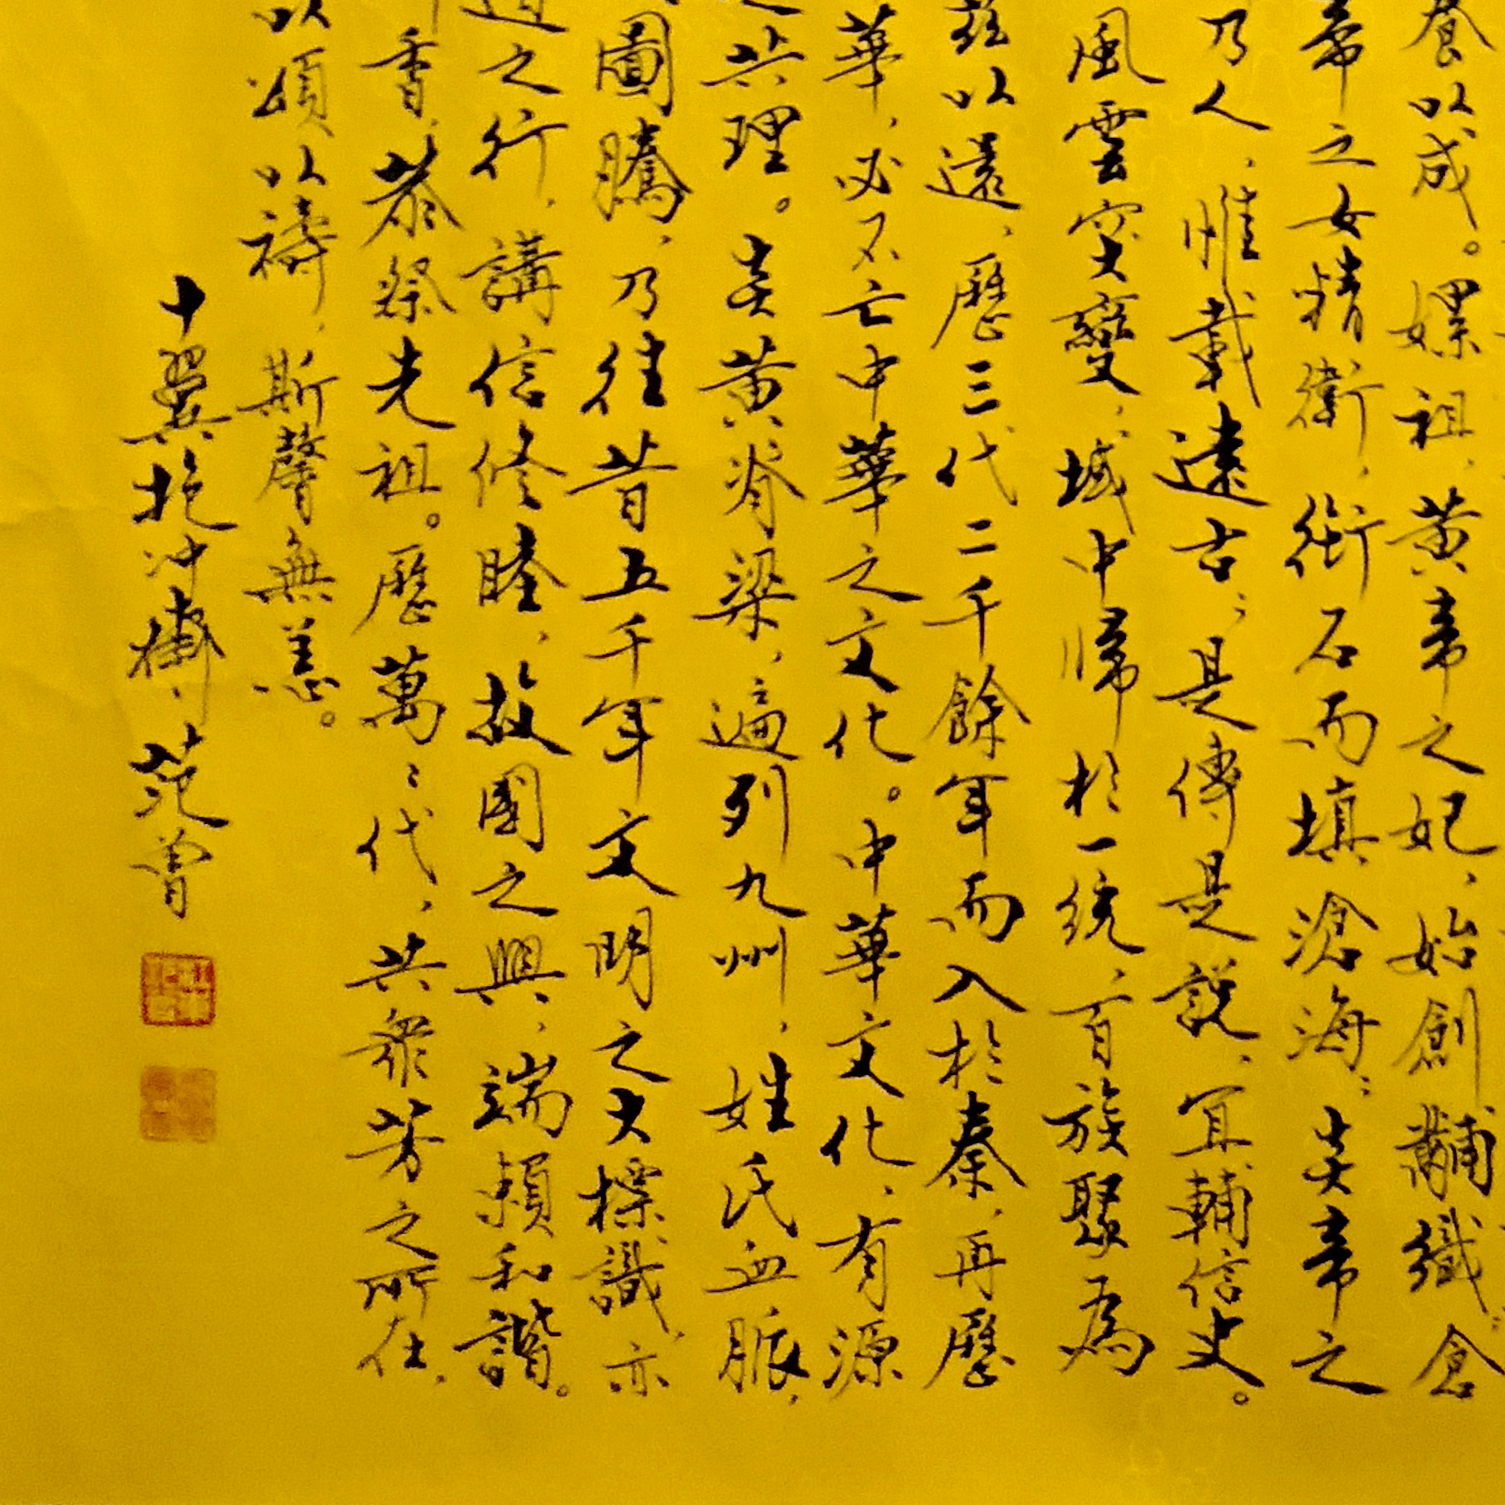 養以成。嫘祖，黄帝之妃，始創黼織；倉
帝之女精衛，銜石而填滄海；炎帝之
乃人，惟載遠古；是傳是說，宜輔信史。
風雲突變，域中歸於一統，百族聚為
以遠，歷三代二千餘年而入於秦，再歷
華，必不亡中華之文化。中華文化，有源
共理。炎黄脊梁，遍列九州，姓氏血脈，
圖騰，乃往昔五千年文明之大標識，亦
之行，講信修睦，故國之興，端賴和諧。
香，恭祭先祖。歷萬々代，共衆芳之所在，
以頌以禱，斯馨無恙。
十翼抱冲齋，范曾